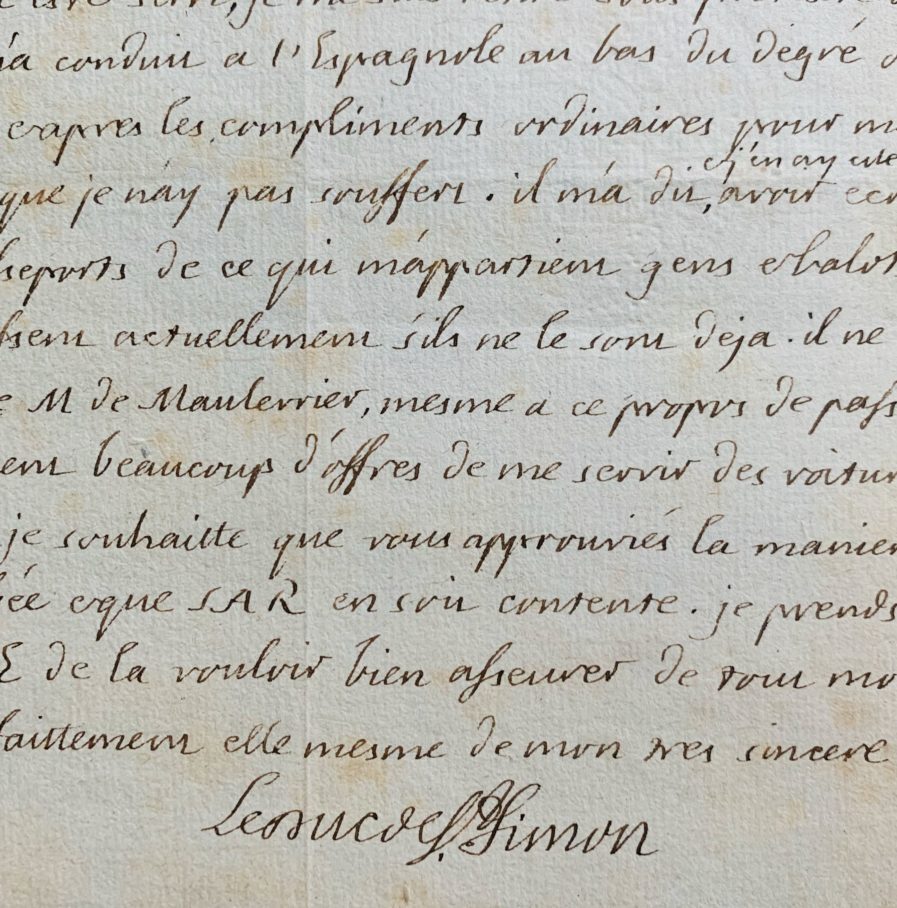 je me suis
m'a conduit a l'Espagnole au bas du degré
et apres les compliments ordinaires pour
et j'en ay
que je n'ay pas souffert. il m'a dit, avoir
de ce qui m'appartient gens et balots
actuellement s'ils ne le sont deja. il ne
M de Maulevrier, mesme a ce propos de
beaucoup d'offres de me servir des
je souhaitte que vous approuviés la
et que SAR en soit contente. je prends
E de la vouloir bien asseurer de tout
elle mesme de mon tres sincere
Le duc de St Simon